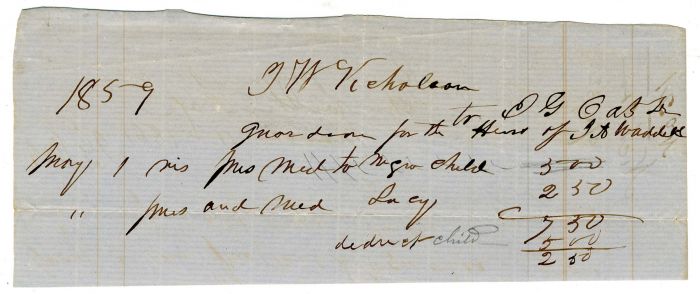 1859 J W Nicholson
to C G Cabe Dr
Guardean for the Heirs of J A Waddell
May 1 vis pres Med to negro child 5 00
" pres and Med Lucy 2 50
7 50
deduct child 5 00
2 50